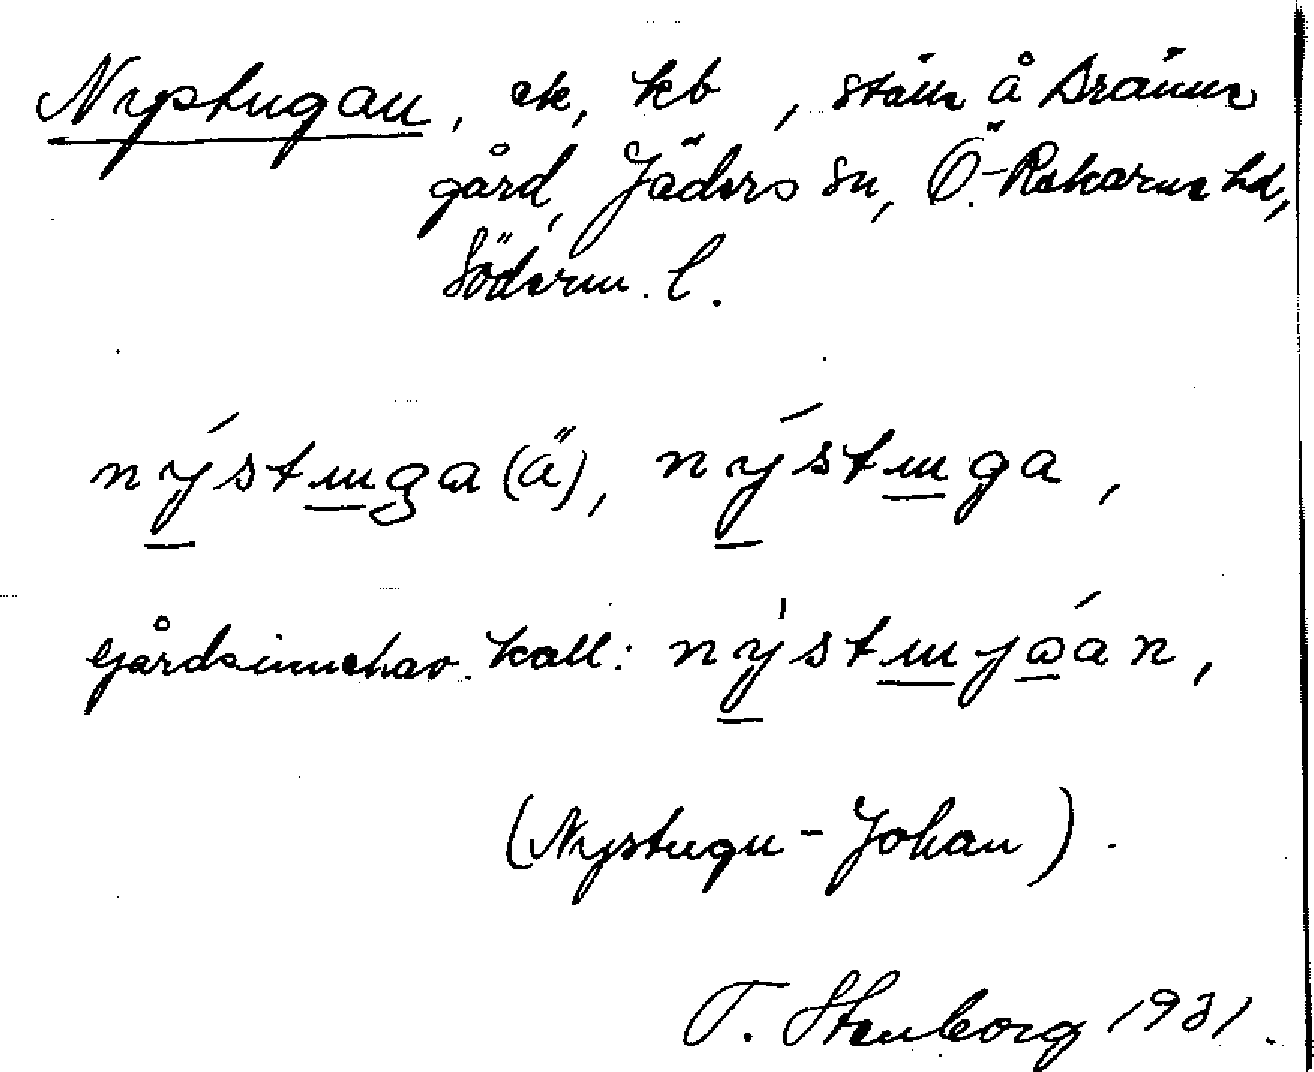 Nystugan, ek, kb, ställe å Dränne
gård, Jäders sn, Ö.-Rekarne hd,
Söderm. l.
nýstuga (ä), nýstuga,
gårdsinnehav. kall: nýstujóan,
(Nystugu-Johan).
T. Stenborg 1931.